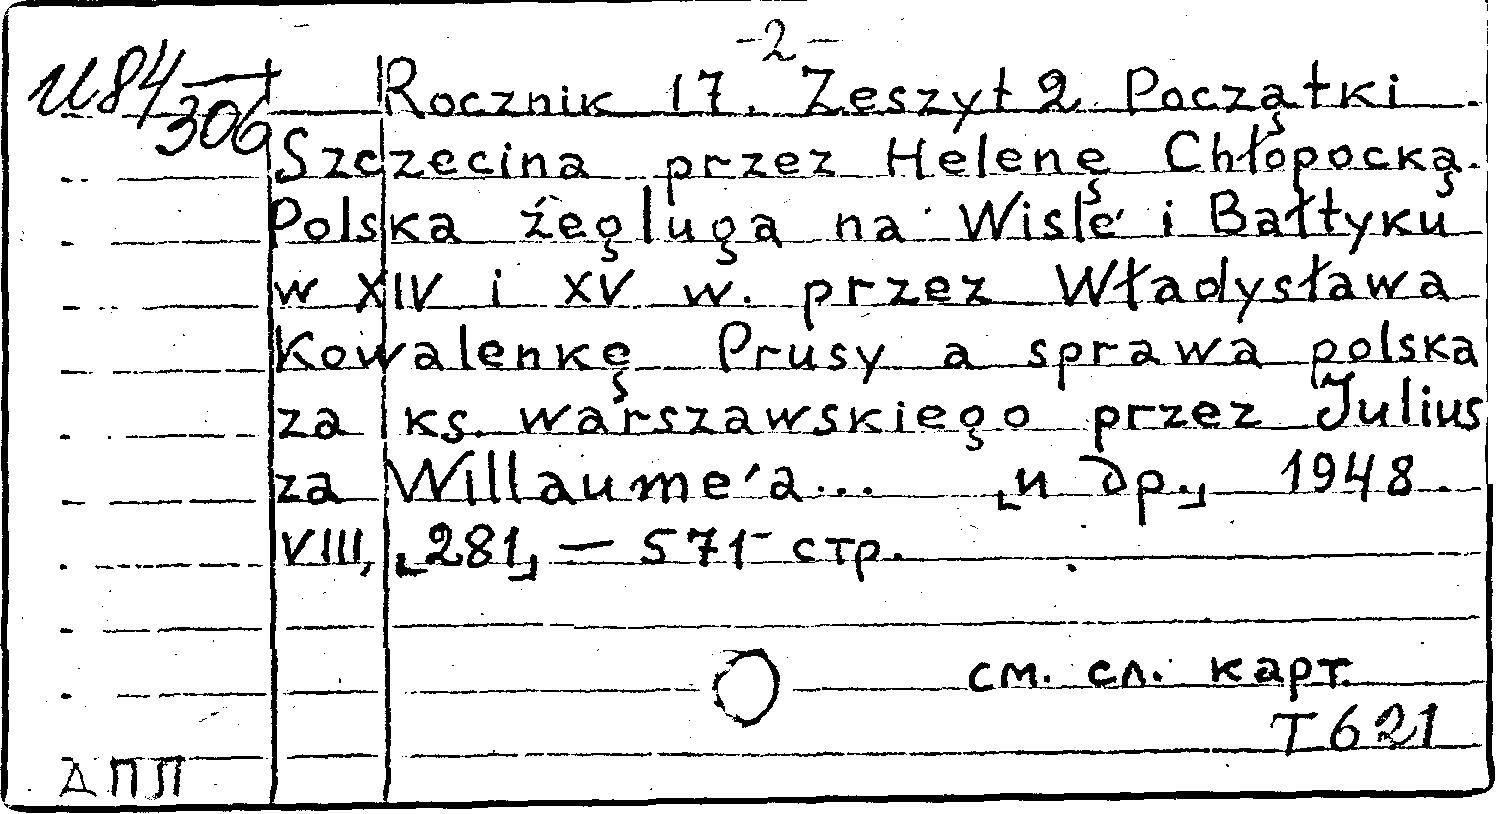 -2-
И84/306
Rocznik 17. Zeszyt 2 Początki
Szczecina przez Helenę Chłopocką.
Polska żeglugа na Wiśle i Bałtyku
w XIV i XV w. przez Władysława
Kowalenkę Prusy a sprawa polska
za ks. warszawskiego przez Julius
za Willaume'a... [и др.] 1948.
VIII, [281] — 571 стр.
см. сл. карт.
Т 621
АПЛ